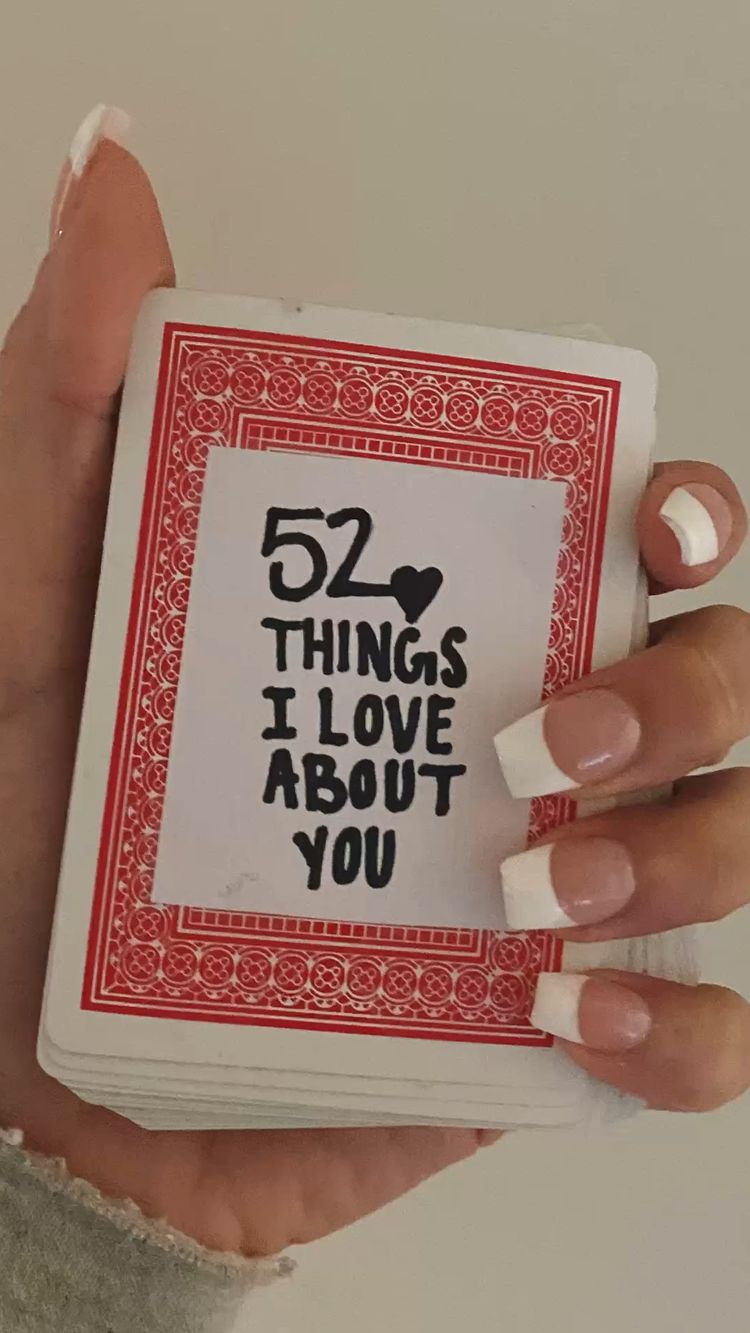 52♥
THINGS
I LOVE
ABOUT
YOU